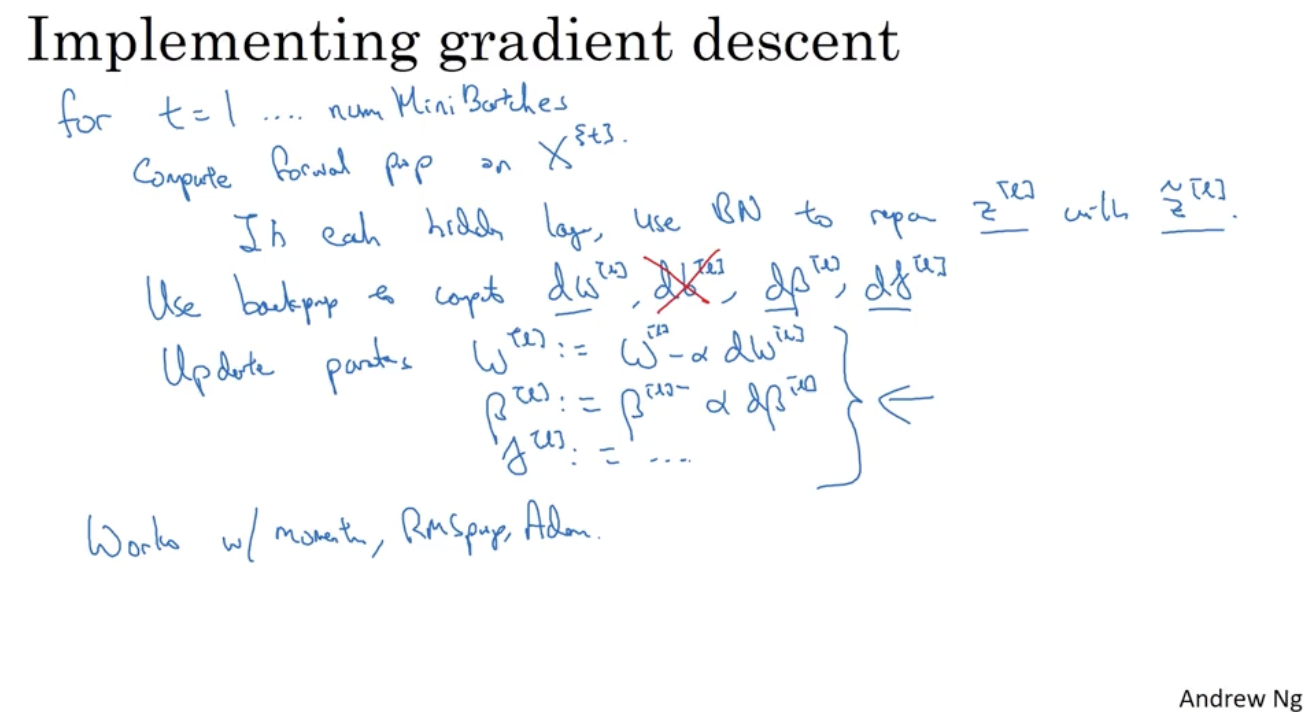 Implementing gradient descent
for t = 1 .... num Mini Batches
Compute forwal pop on X^{t}.
In eah hidden lay, use BN to repa z^[l] with z̃^[l].
Use backprop to compt dw^[l], db^[l], dβ^[l], dγ^[l]
Update w^[l] := w^[l] - α dw^[l]
β^[l] := β^[l] - α dβ^[l]
γ^[l] := ....
Works w/ momentm, RMSprop, Adam.
Andrew Ng